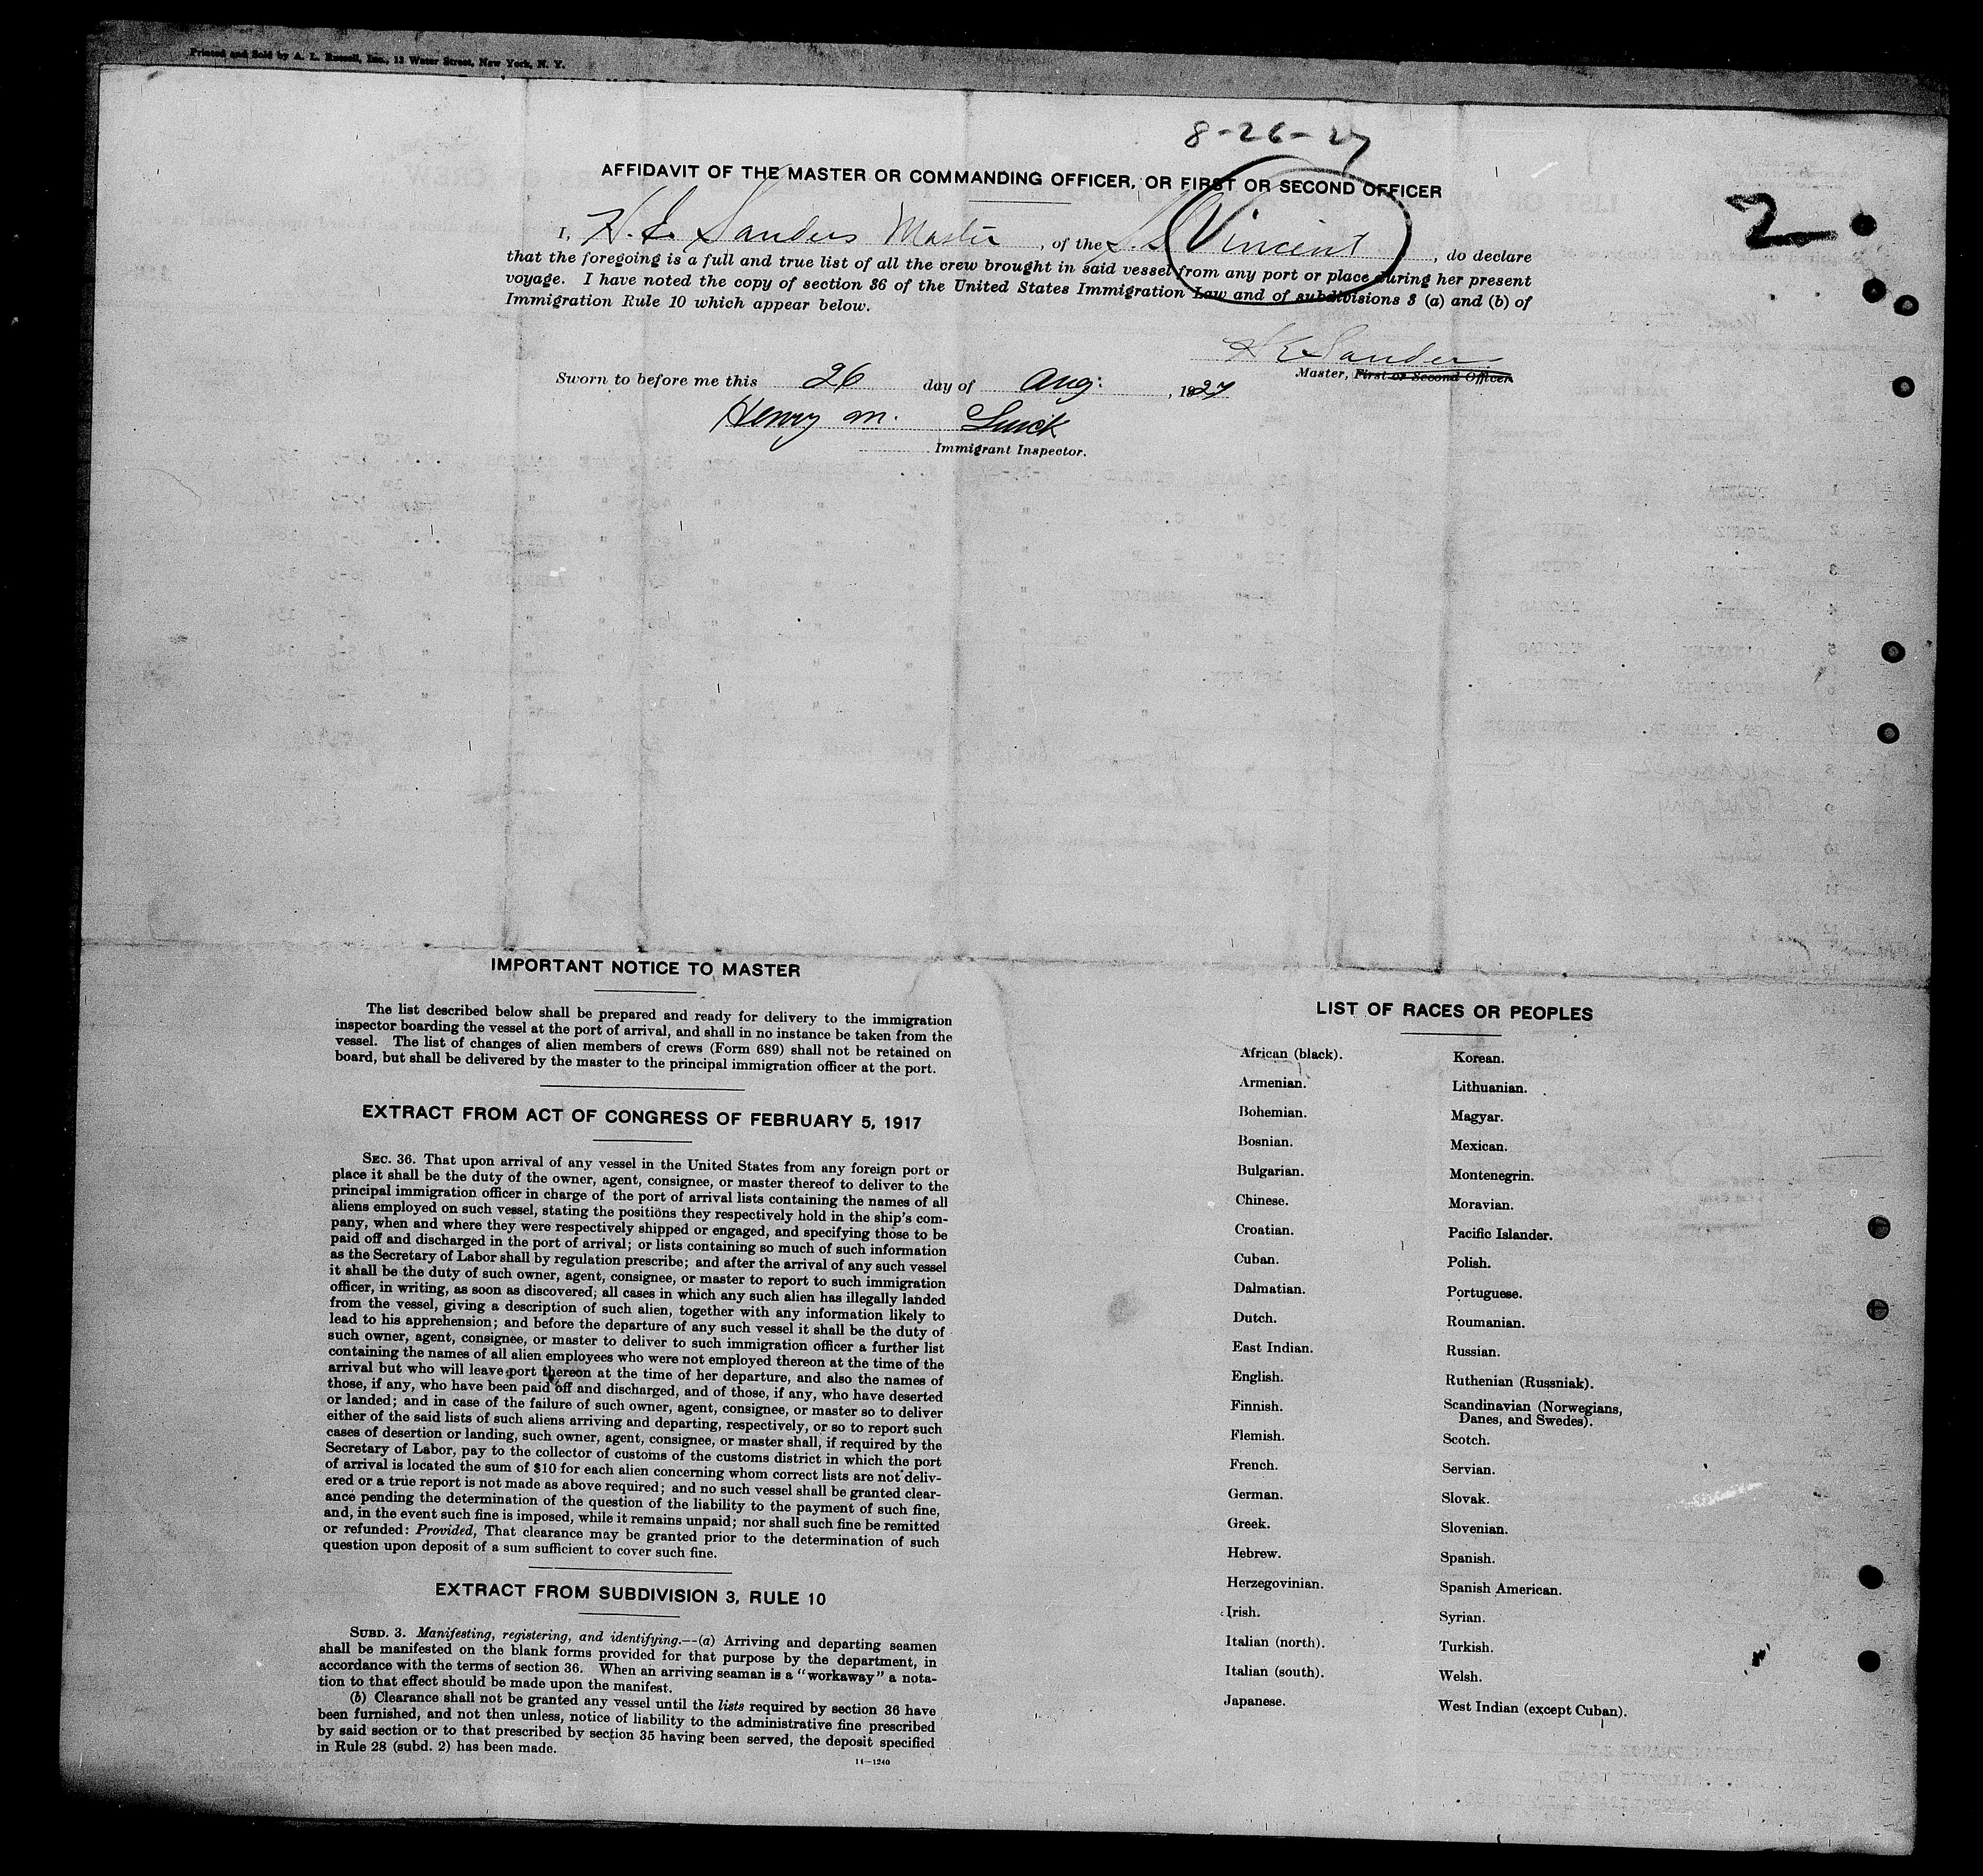 Printed and Sold by A. L. Russell, Inc., 12 Water Street, New York, N. Y.
8-26-27
AFFIDAVIT OF THE MASTER OR COMMANDING OFFICER, OR FIRST OR SECOND OFFICER
2
I, H. E. Sanders Master, of the S.S. Vincent, do declare
that the foregoing is a full and true list of all the crew brought in said vessel from any port or place during her present
voyage. I have noted the copy of section 36 of the United States Immigration Law and of subdivisions 3 (a) and (b) of
Immigration Rule 10 which appear below.
H E Sanders
Master, First or Second Officer.
Sworn to before me this 26 day of Aug: , 1927
Henry M.
Immigrant Inspector.
IMPORTANT NOTICE TO MASTER
The list described below shall be prepared and ready for delivery to the immigration
inspector boarding the vessel at the port of arrival, and shall in no instance be taken from the
vessel. The list of changes of alien members of crews (Form 689) shall not be retained on
board, but shall be delivered by the master to the principal immigration officer at the port.
EXTRACT FROM ACT OF CONGRESS OF FEBRUARY 5, 1917
SEC. 36. That upon arrival of any vessel in the United States from any foreign port or
place it shall be the duty of the owner, agent, consignee, or master thereof to deliver to the
principal immigration officer in charge of the port of arrival lists containing the names of all
aliens employed on such vessel, stating the positions they respectively hold in the ship's com-
pany, when and where they were respectively shipped or engaged, and specifying those to be
paid off and discharged in the port of arrival; or lists containing so much of such information
as the Secretary of Labor shall by regulation prescribe; and after the arrival of any such vessel
it shall be the duty of such owner, agent, consignee, or master to report to such immigration
officer, in writing, as soon as discovered, all cases in which any such alien has illegally landed
from the vessel, giving a description of such alien, together with any information likely to
lead to his apprehension; and before the departure of any such vessel it shall be the duty of
such owner, agent, consignee, or master to deliver to such immigration officer a further list
containing the names of all alien employees who were not employed thereon at the time of the
arrival but who will leave port thereon at the time of her departure, and also the names of
those, if any, who have been paid off and discharged, and of those, if any, who have deserted
or landed; and in case of the failure of such owner, agent, consignee, or master so to deliver
either of the said lists of such aliens arriving and departing, respectively, or so to report such
cases of desertion or landing, such owner, agent, consignee, or master shall, if required by the
Secretary of Labor, pay to the collector of customs of the customs district in which the port
of arrival is located the sum of $10 for each alien concerning whom correct lists are not deliv-
ered or a true report is not made as above required; and no such vessel shall be granted clear-
ance pending the determination of the question of the liability to the payment of such fine,
and, in the event such fine is imposed, while it remains unpaid; nor shall such fine be remitted
or refunded: Provided, That clearance may be granted prior to the determination of such
question upon deposit of a sum sufficient to cover such fine.
EXTRACT FROM SUBDIVISION 3, RULE 10
SUBD. 3. Manifesting, registering, and identifying.—(a) Arriving and departing seamen
shall be manifested on the blank forms provided for that purpose by the department, in
accordance with the terms of section 36. When an arriving seaman is a "workaway" a nota-
tion to that effect should be made upon the manifest.
(b) Clearance shall not be granted any vessel until the lists required by section 36 have
been furnished, and not then unless, notice of liability to the administrative fine prescribed
by said section or to that prescribed by section 35 having been served, the deposit specified
in Rule 28 (subd. 2) has been made.
14—1240
LIST OF RACES OR PEOPLES
African (black).
Armenian.
Bohemian.
Bosnian.
Bulgarian.
Chinese.
Croatian.
Cuban.
Dalmatian.
Dutch.
East Indian.
English.
Finnish.
Flemish.
French.
German.
Greek.
Hebrew.
Herzegovinian.
Irish.
Italian (north).
Italian (south).
Japanese.
Korean.
Lithuanian.
Magyar.
Mexican.
Montenegrin.
Moravian.
Pacific Islander.
Polish.
Portuguese.
Roumanian.
Russian.
Ruthenian (Russniak).
Scandinavian (Norwegians,
Danes, and Swedes).
Scotch.
Servian.
Slovak.
Slovenian.
Spanish.
Spanish American.
Syrian.
Turkish.
Welsh.
West Indian (except Cuban).